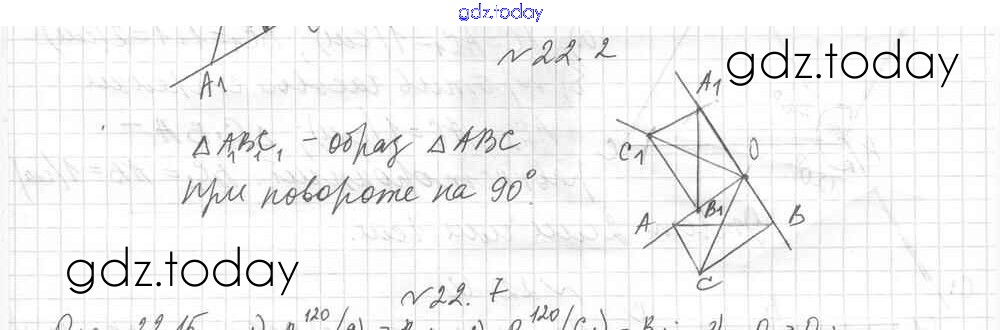 gdz.today
A1
№22.2
gdz.today
A1
C1
O
△A₁B₁C₁ - образ △ABC
при повороте на 90°.
B1
A
B
C
gdz.today
№22.7